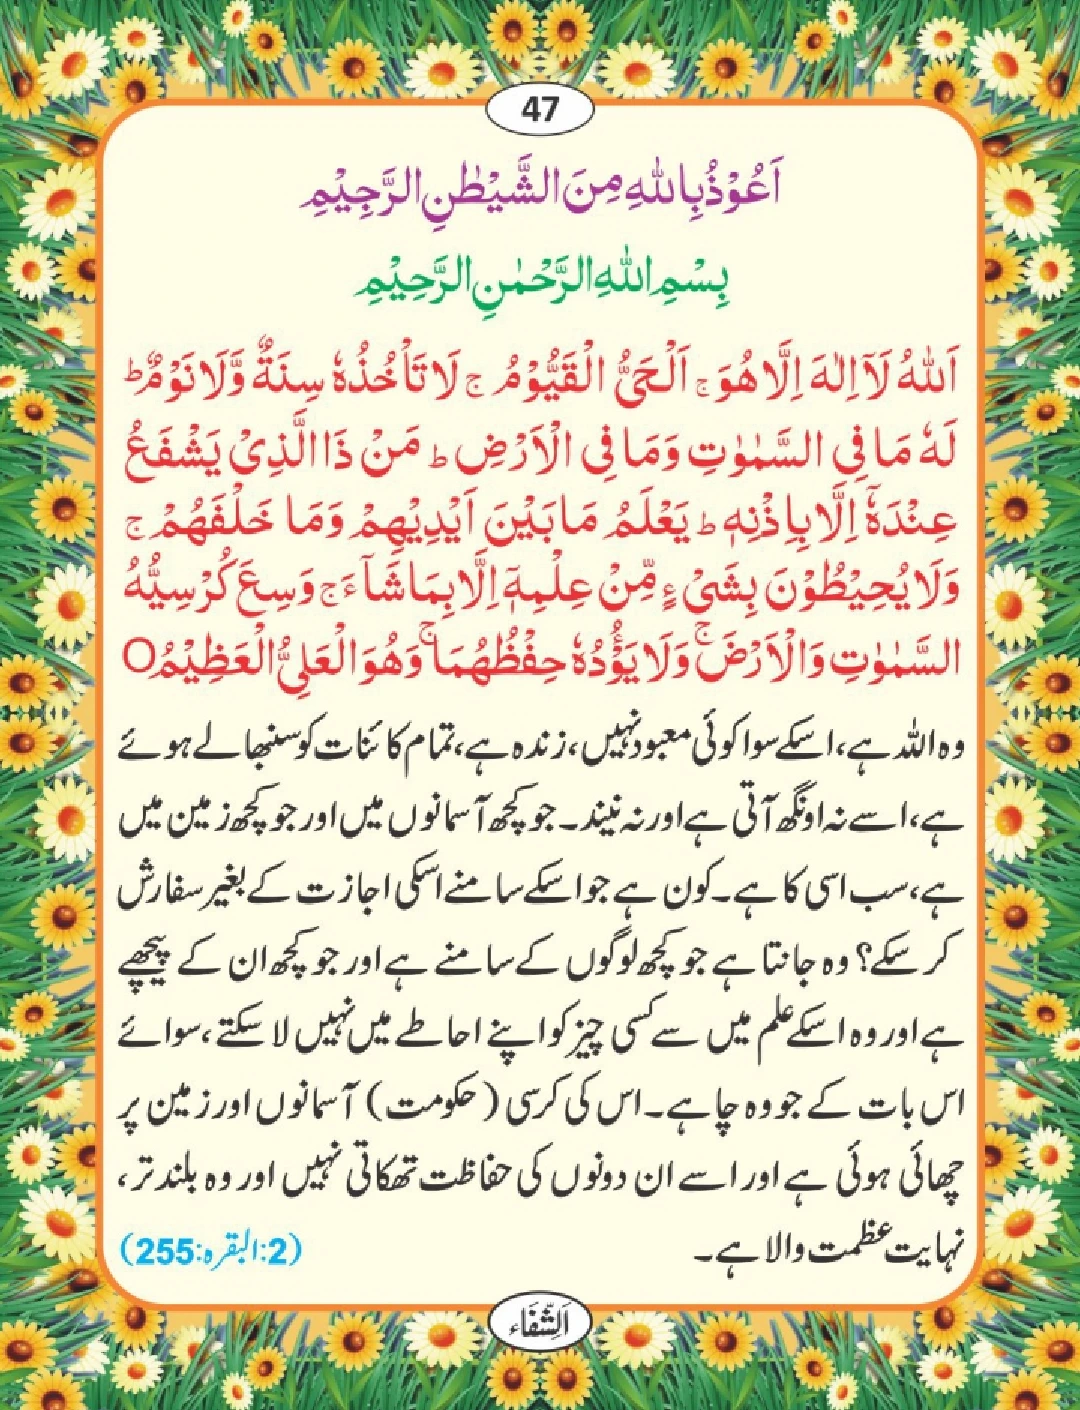 47
اَعُوْذُ بِاللّٰهِ مِنَ الشَّيْطٰنِ الرَّجِيْمِ
بِسْمِ اللّٰهِ الرَّحْمٰنِ الرَّحِيْمِ
اَللّٰهُ لَآ اِلٰهَ اِلَّا هُوَ ج اَلْحَیُّ الْقَیُّوْمُ ج لَا تَاْخُذُهٗ سِنَةٌ وَّلَا نَوْمٌ ط
لَهٗ مَا فِی السَّمٰوٰتِ وَمَا فِی الْاَرْضِ ط مَنْ ذَا الَّذِیْ یَشْفَعُ
عِنْدَهٗٓ اِلَّا بِاِذْنِهٖ ط یَعْلَمُ مَا بَیْنَ اَیْدِیْهِمْ وَمَا خَلْفَهُمْ ج
وَلَا یُحِیْطُوْنَ بِشَیْءٍ مِّنْ عِلْمِهٖٓ اِلَّا بِمَا شَآءَ ج وَسِعَ كُرْسِیُّهُ
السَّمٰوٰتِ وَالْاَرْضَ ج وَلَا یَؤٗدُهٗ حِفْظُهُمَا ج وَهُوَ الْعَلِیُّ الْعَظِیْمُ O
وہ اللہ ہے، اسکے سوا کوئی معبود نہیں، زندہ ہے، تمام کائنات کو سنبھالے ہوئے
ہے، اسے نہ اونگھ آتی ہے اور نہ نیند۔ جو کچھ آسمانوں میں اور جو کچھ زمین میں
ہے، سب اسی کا ہے۔ کون ہے جو اسکے سامنے اسکی اجازت کے بغیر سفارش
کر سکے؟ وہ جانتا ہے جو کچھ لوگوں کے سامنے ہے اور جو کچھ ان کے پیچھے
ہے اور وہ اسکے علم میں سے کسی چیز کو اپنے احاطے میں نہیں لا سکتے، سوائے
اس بات کے جو وہ چاہے۔ اس کی کرسی (حکومت) آسمانوں اور زمین پر
چھائی ہوئی ہے اور اسے ان دونوں کی حفاظت تھکاتی نہیں اور وہ بلند تر،
نہایت عظمت والا ہے۔ (2:البقرہ:255)
اَلشِّفَاء